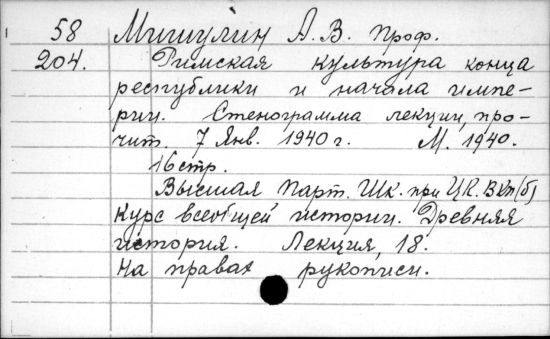 58 Мишулин А.В. проф.
204. Римская культура конца
республики и начала импе-
рии. Стенограмма лекции, про-
чит. 7 Янв. 1940 г. М. 1940.
16 стр.
Высшая Парт. Шк. при ЦК. ВКП(б)
Курс всеобщей истории. Древняя
история. Лекция, 18.
На правах рукописи.